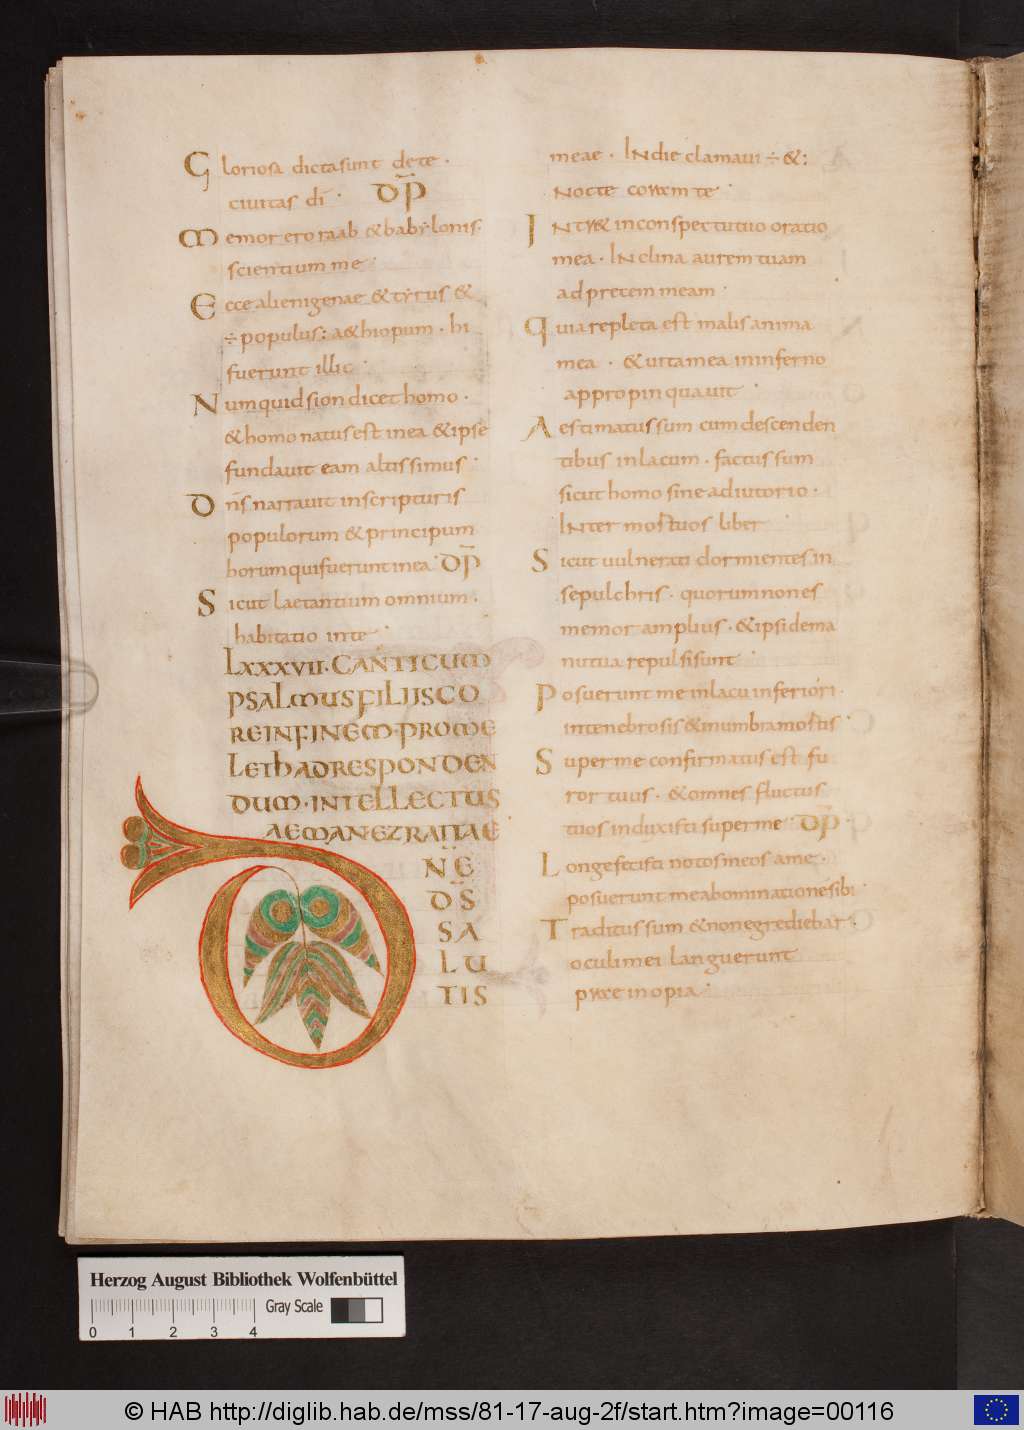 Gloriosa dicta sunt de te ·
ciuitas dī · DP̄
Memor ero raab & babẏlonis ·
scientium me ·
Ecce alienigenae & tẏrus &
÷ populus : a&hiopum · hi
fuerunt illic ·
Numquid sion dicet homo ·
& homo natus est in ea & ipse
fundauit eam altissimus ·
Dn̄s narrauit in scripturis
populorum & principum
horum qui fuerunt in ea · DP̄
Sicut laetantium omnium ·
habitatio in te ·
LXXXVII · CANTICUM
PSALMUS FILIIS CO
RE IN FINEM · PRO ME
LETH AD RESPONDEN
DUM · INTELLECTUS
AEMAN EZRAITAE
DN̄E
D̄S
SA
LU
TIS
meae · IN die clamaui ÷ & :
Nocte coram te ·
INtr& in conspectu tuo oratio
mea · INclina aurem tuam
ad precem meam ·
Quia repleta est malis anima
mea · & uita mea in inferno
appropinquauit ·
Aestimatus sum cum descenden
tibus in lacum · factus sum
sicut homo sine adiutorio ·
INter mortuos liber ·
Sicut uulnerati dormientes in
sepulchris · quorum non es
memor amplius · & ipsi de ma
nu tua repulsi sunt ·
Posuerunt me in lacu inferiori ·
in tenebrosis & in umbra mortis ·
Super me confirmatus est fu
ror tuus · & omnes fluctus
tuos induxisti super me · DP̄
Longe fecisti notos meos a me ·
posuerunt me abominationē sibi ·
Traditus sum & non egrediebar ·
oculi mei languerunt
prae inopia ·
Herzog August Bibliothek Wolfenbüttel
Gray Scale
0 1 2 3 4
© HAB http://diglib.hab.de/mss/81-17-aug-2f/start.htm?image=00116